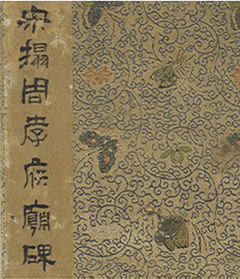 宋搨周孝侯廟碑